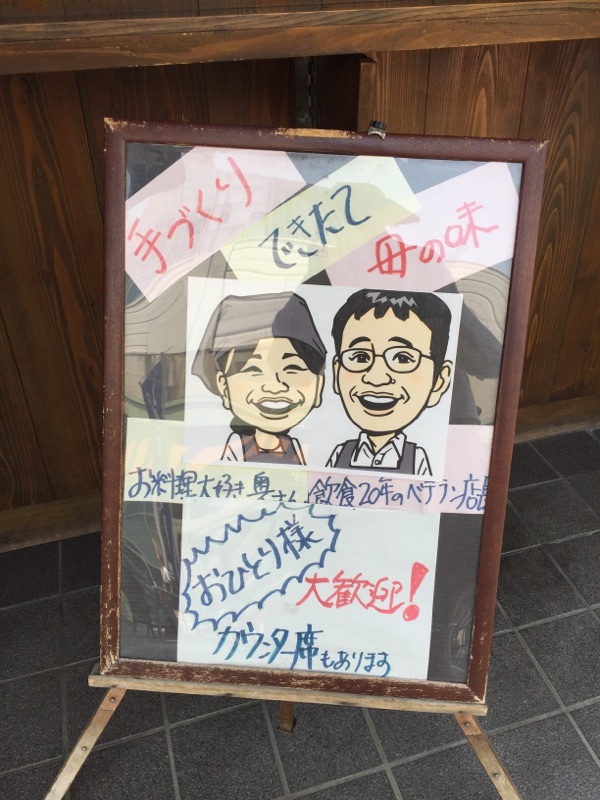 手づくり
できたて
母の味
お料理大好き奥さん
飲食20年のベテラン店長
おひとり様
大歓迎!
カウンター席もあります